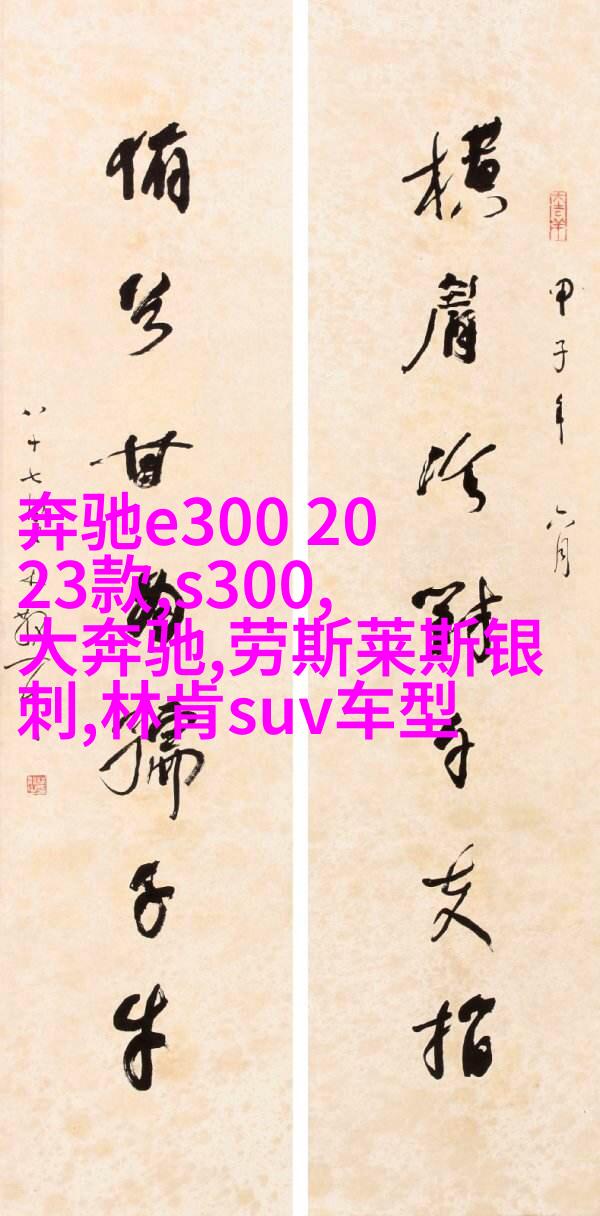 奔驰e300 20
23款,s300,
大奔驰,劳斯莱斯银
刺,林肯suv车型
甲子年六月
橫眉冷對千夫指
俯首甘為孺子牛
八十七